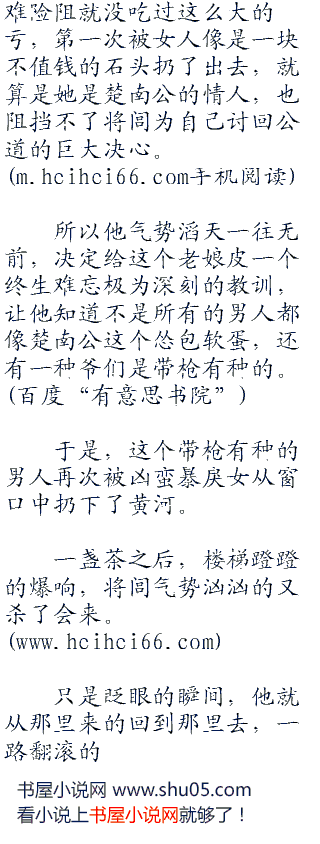 难险阻就没吃过这么大的
亏，第一次被女人像是一块
不值钱的石头扔了出去，就
算是她是楚南公的情人，也
阻挡不了将闾为自己讨回公
道的巨大决心。
(m.hcihci66.com手机阅读)
所以他气势滔天一往无
前，决定给这个老娘皮一个
终生难忘极为深刻的教训，
让他知道不是所有的男人都
像楚南公这个怂包软蛋，还
有一种爷们是带枪有种的。
(百度“有意思书院”)
于是，这个带枪有种的
男人再次被凶蛮暴戾女从窗
口中扔下了黄河。
一盏茶之后，楼梯蹬蹬
的爆响，将闾气势汹汹的又
杀了会来。
(www.hcihci66.com)
只是眨眼的瞬间，他就
从那里来的回到那里去，一
路翻滚的
书屋小说网 www.shu05.com
看小说上书屋小说网就够了！